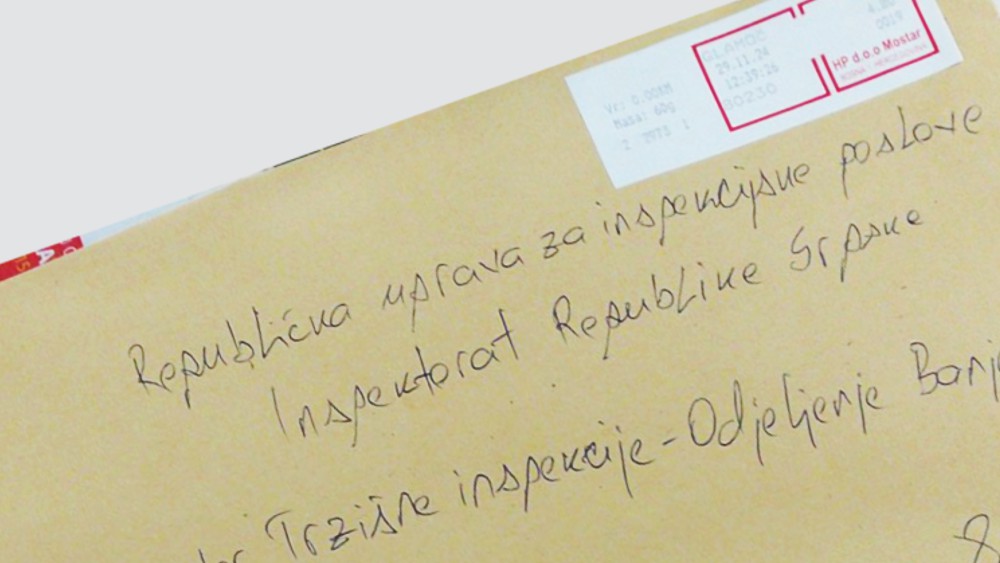 GLAMOČ
29.11.24
12:39:26
80230
4.80
0019
HP d.o.o Mostar
BOSNA I HERCEGOVINA
Vr: 0.00KM
Masa: 60g
Republička uprava za inspekcijske poslove
Inspektorat Republike Srpske
Tržišne inspekcije-Odjeljenje Banj